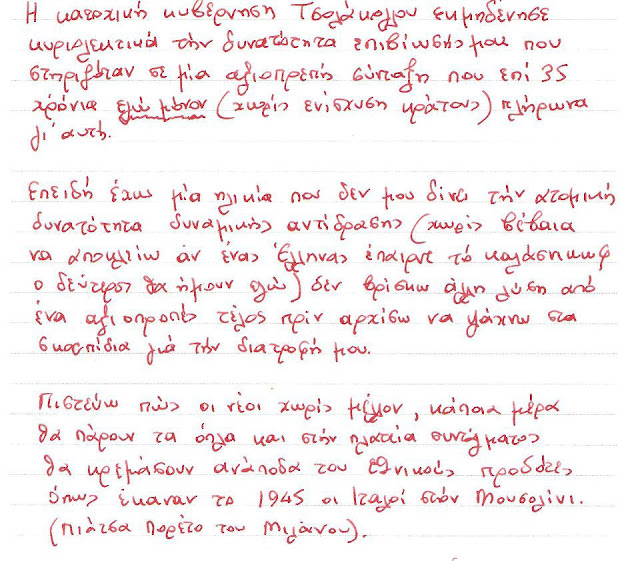 Η κατοχική κυβέρνηση Τσολάκογλου εκμηδένησε
κυριολεκτικά την δυνατότητα επιβίωσής μου που
στηριζόταν σε μία αξιοπρεπή σύνταξη που επί 35
χρόνια εγώ μόνον (χωρίς ενίσχυση κράτους) πλήρωνα
γι' αυτή.
Επειδή έχω μία ηλικία που δεν μου δίνει τήν ατομική
δυνατότητα δυναμικής αντίδρασης (χωρίς βέβαια
να αποκλείω άν ένας Έλληνας έπαιρνε τό καλάσηκωφ
ο δεύτερος θα ήμουν εγώ) δέν βρίσκω άλλη λύση από
ένα αξιοπρεπές τέλος πρίν αρχίσω να ψάχνω στα
σκουπίδια γιά την διατροφή μου.
Πιστεύω πώς οι νέοι χωρίς μέλλον, κάποια μέρα
θα πάρουν τα όπλα και στήν πλατεία συντάγματος
θα κρεμάσουν ανάποδα τους εθνικούς προδότες
όπως έκαναν το 1945 οι Ιταλοί στόν Μουσολίνι.
(Πιάτσα Πορέτο του Μιλάνου).